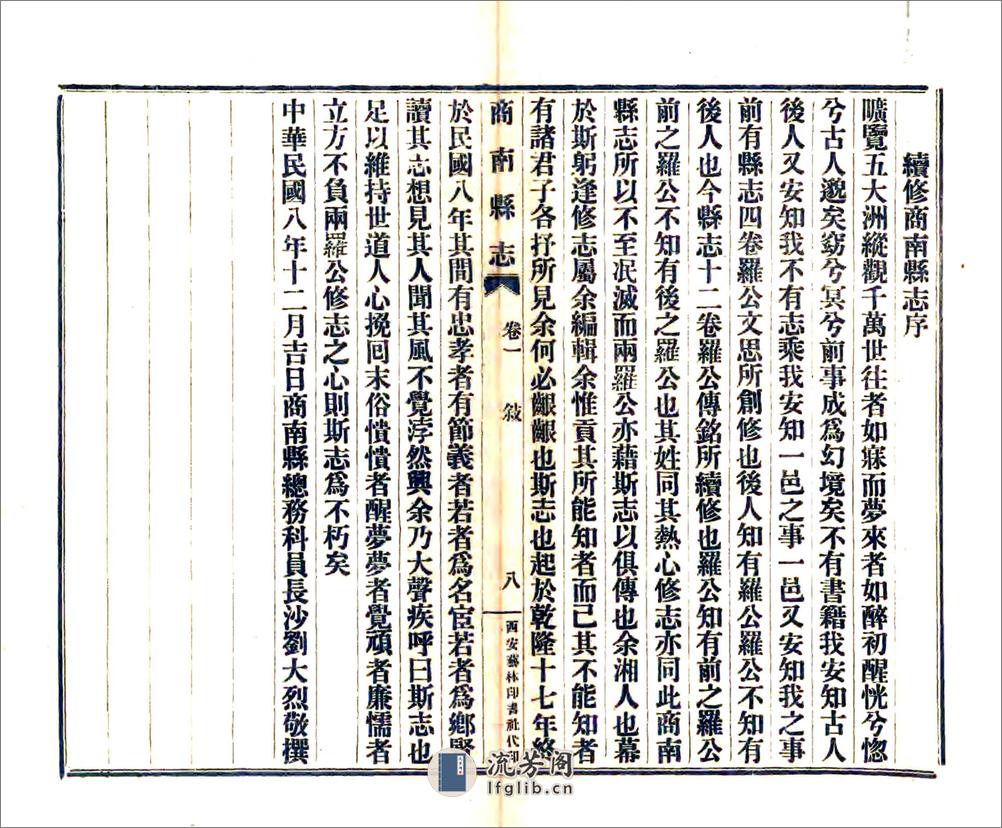 續修商南縣志序
曠覽五大洲縱觀千萬世往者如寐而夢來者如醉初醒恍兮惚
兮古人邈矣窈兮冥兮前事成爲幻境矣不有書籍我安知古人
後人又安知我不有志乘我安知一邑之事一邑又安知我之事
前有縣志四卷羅公文思所創修也後人知有羅公羅公不知有
後人也今縣志十二卷羅公傳銘所續修也羅公知有前之羅公
前之羅公不知有後之羅公也其姓同其熱心修志亦同此商南
縣志所以不至泯滅而兩羅公亦藉斯志以俱傳也余湘人也幕
於斯躬逢修志屬余編輯余惟貢其所能知者而已其不能知者
有諸君子各抒所見余何必齦齦也斯志也起於乾隆十七年終
商南縣志 卷一 敍 八 西安藝林印書社代印
於民國八年其間有忠孝者有節義者若者爲名宦若者爲鄉賢
讀其志想見其人聞其風不覺浡然興余乃大聲疾呼曰斯志也
足以維持世道人心挽回末俗憒憒者醒夢夢者覺頑者廉懦者
立方不負兩羅公修志之心則斯志爲不朽矣
中華民國八年十二月吉日商南縣總務科員長沙劉大烈敬撰
流芳阁
lfglib.cn